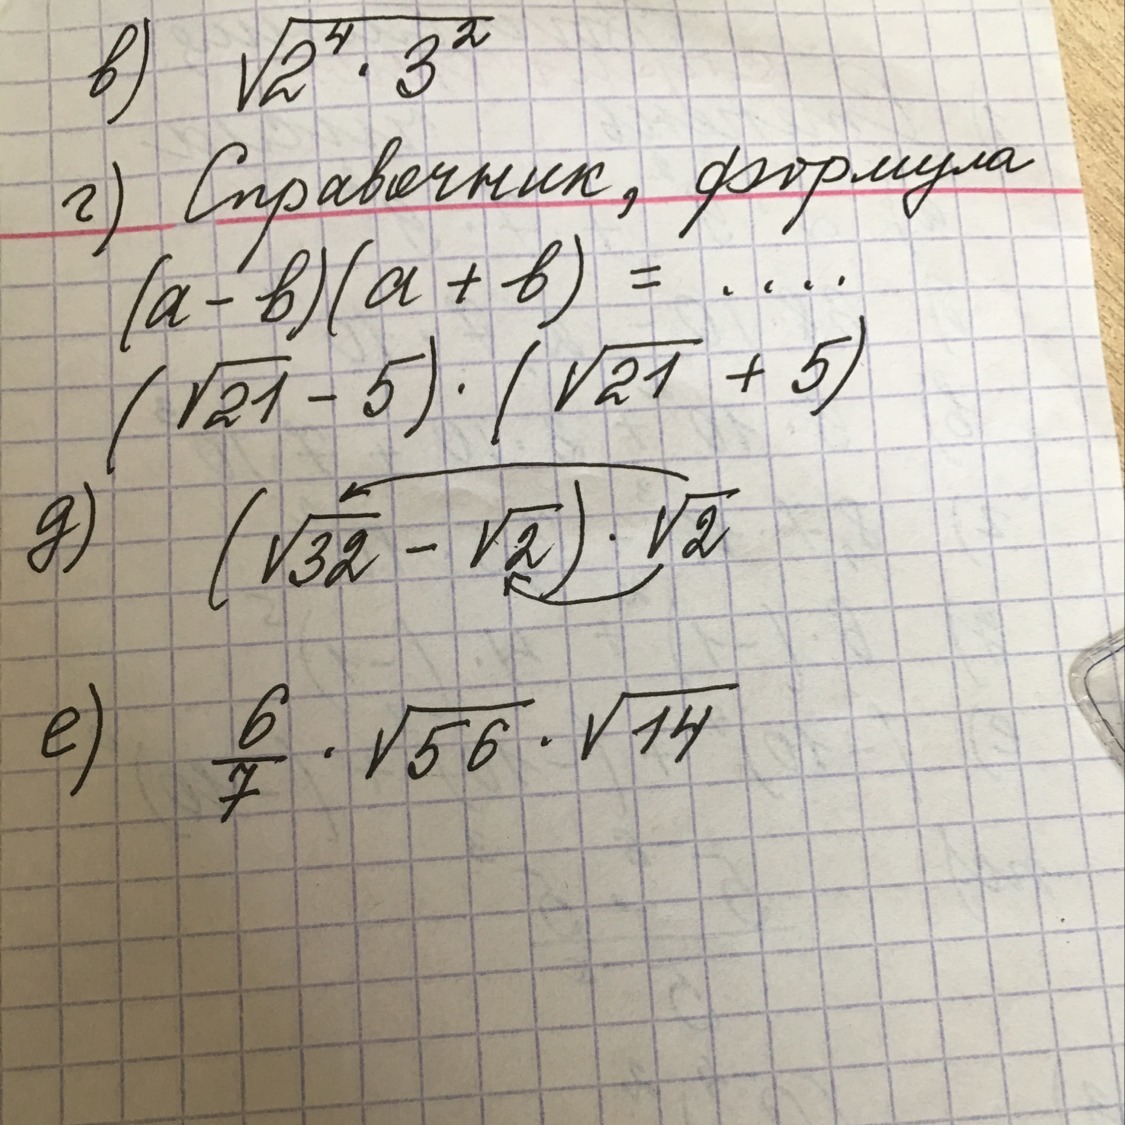 в) √2⁴ · 3²
г) Справочник, формула
(а - в)(а + в) = ....
(√21 - 5) · (√21 + 5)
д) (√32 - √2) · √2
е) 6/7 · √56 · √14